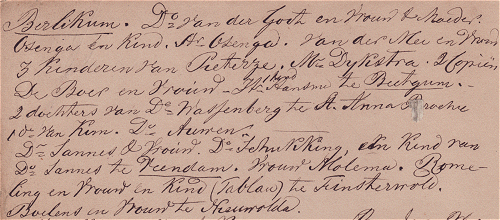 Berlikum. Ds van der Goot en Vrouw & Moeder.
Osenga en Kind. Ar Osenga. van der Mee en Vrouw
3 Kinderen van Pieterze, Mr Dykstra. 2 Copiën
De Boer en Vrouw - Wed Hansme te Beetgum. -
2 dochters van Ds Wassenberg te St. Anna Proche
1 Ds van Kim. Ds Auwen
Ds Sannes & Vrouw. Ds Schukking, en Kind van
Ds Sannes te Veendam. Vrouw Molema. Rome-
ling en Vrouw en Kind (Tablau) te Finsterwold.
Boelens en Vrouw te Nieuwolda.